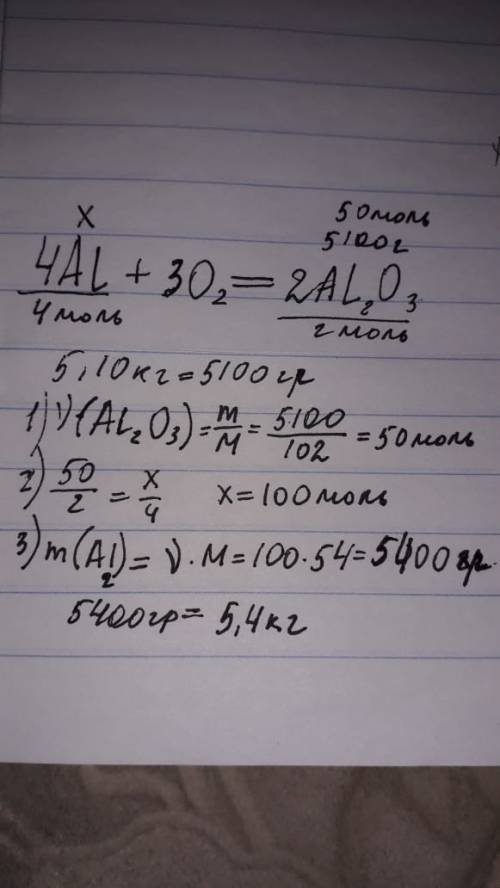 x 50 моль
5100г
4AL + 3O₂ = 2AL₂O₃
4 моль 2 моль
5,10кг = 5100гр
1) ν(AL₂O₃) = m/M = 5100/102 = 50моль
2) 50/2 = x/4 x = 100 моль
3) m(Al₂) = ν · M = 100 · 54 = 5400 гр.
5400гр = 5,4кг